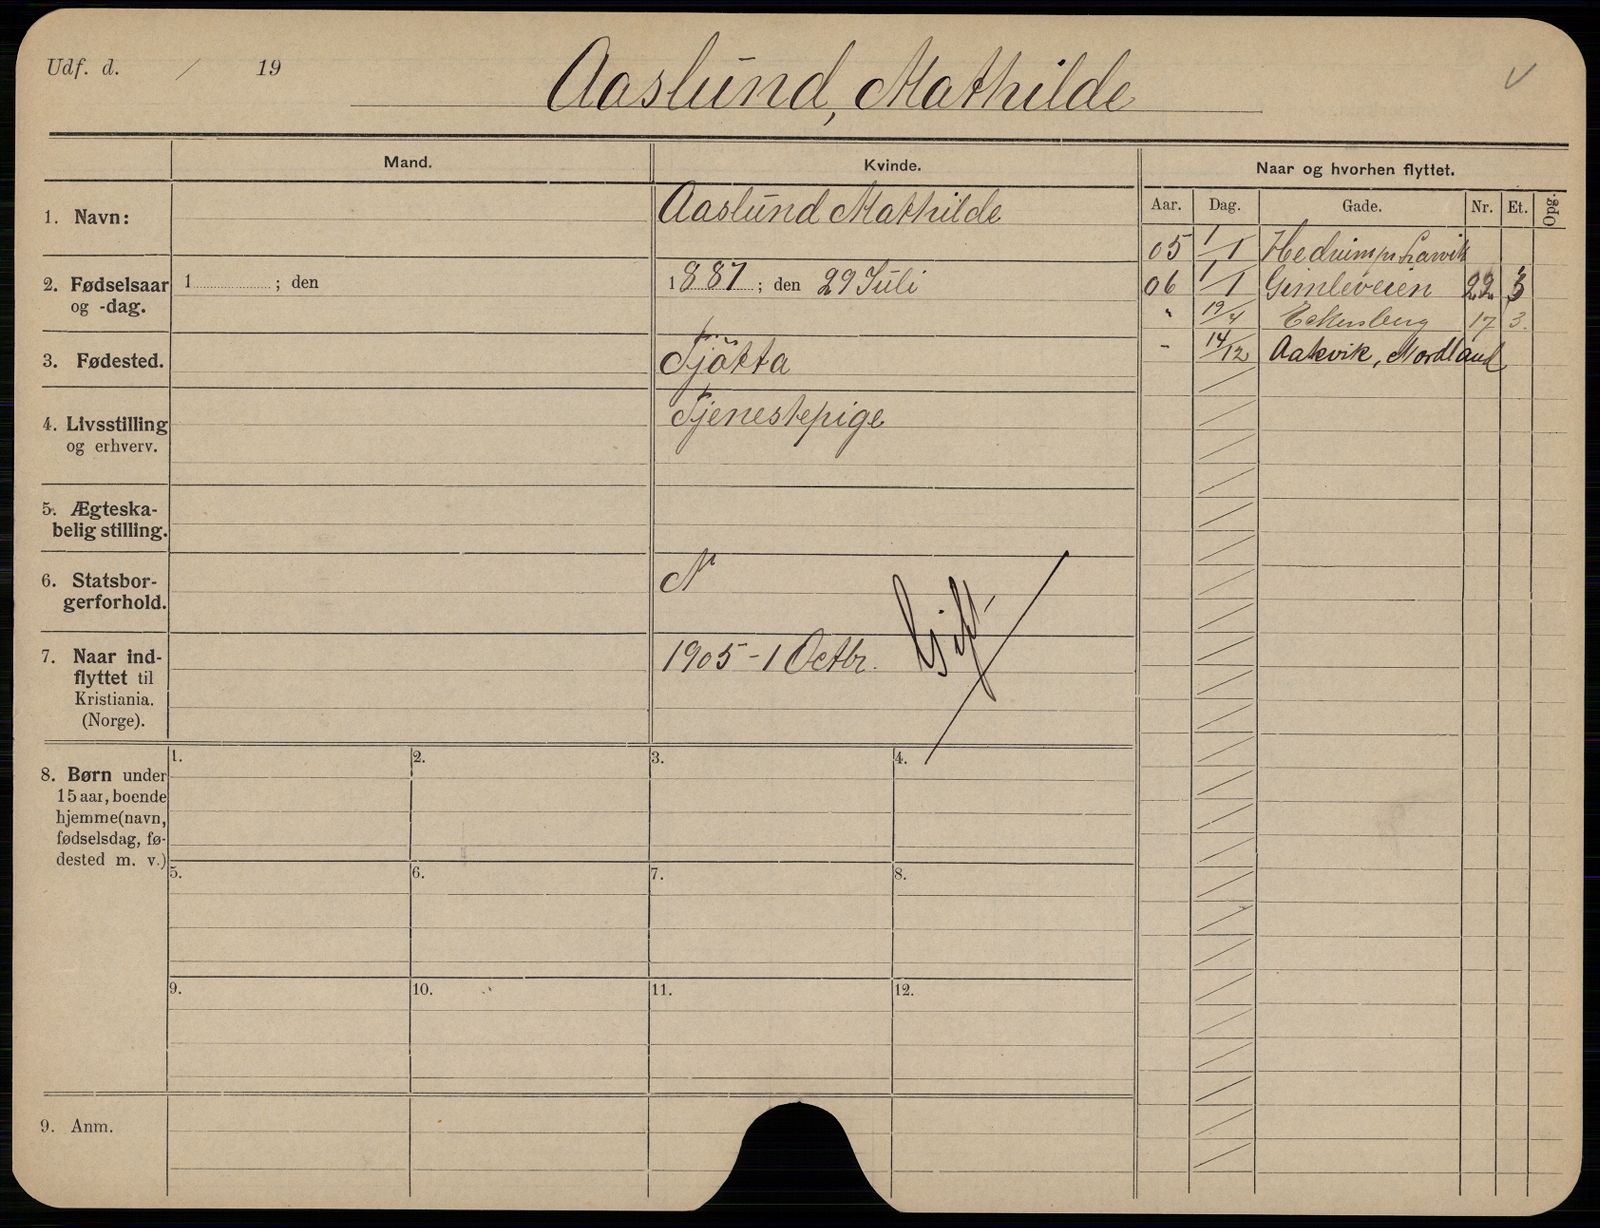 Udf. d. / 19
Aaslund, Mathilde
Mand.
Kvinde.
Naar og hvorhen flyttet.
Aar. Dag. Gade. Nr. Et. Opg.
1. Navn:
Aaslund Mathilde
05 1/1 Larvik
2. Fødselsaar
og -dag.
1 ; den
1887 ; den 29 Juli
06 1/1 Gimleveien 22 3
" 19/4 Eckersberg 17 3.
3. Fødested.
Tjøtta
- 14/12 Aakvik, Nordland
4. Livsstilling
og erhverv.
Tjenestepige
5. Ægteska-
belig stilling.
6. Statsbor-
gerforhold.
N
Gift
7. Naar ind-
flyttet til
Kristiania.
(Norge).
1905 - 1 Octbr.
8. Børn under
15 aar, boende
hjemme (navn,
fødselsdag, fø-
dested m. v.)
1. 2. 3. 4.
5. 6. 7. 8.
9. 10. 11. 12.
9. Anm.